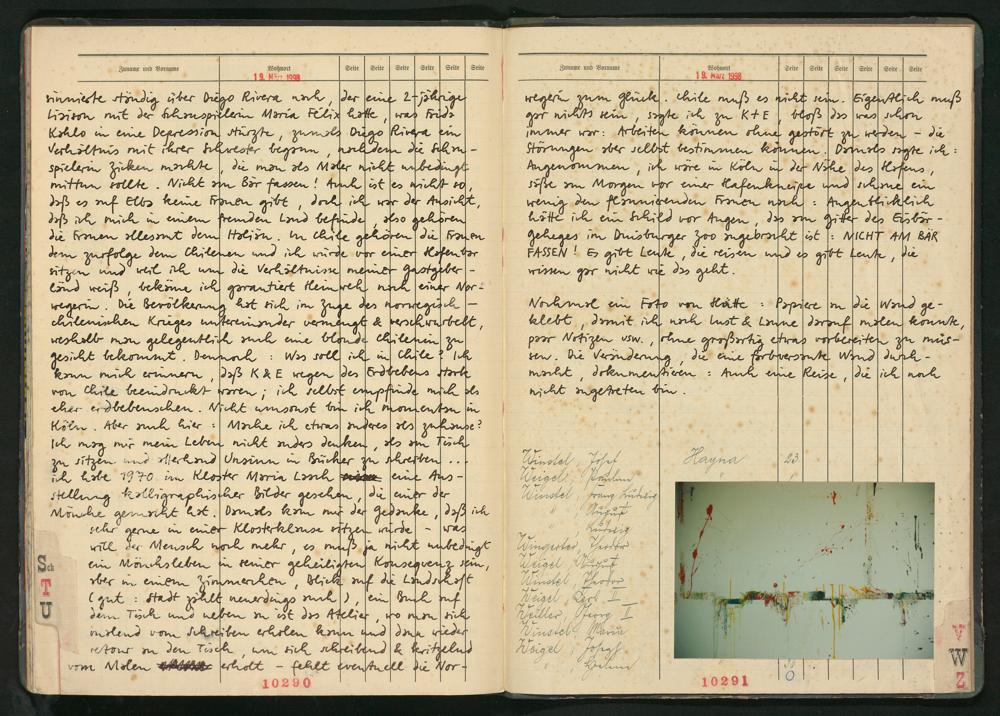 Zuname und Vorname
Wohnort
Seite Seite Seite Seite Seite Seite
19. März 1998
sinnierte ständig über Diego Rivera nach, der eine 2-jährige
Liaison mit der Schauspielerin Maria Félix hatte, was Frida
Kahlo in eine Depression stürzte, zumals Diego Rivera ein
Verhältnis mit ihrer Schwester begann, nachdem die Schau-
spielerin Zicken machte, die man als Maler nicht unbedingt
mitten sollte. Nicht am Bär fassen! Auch ist es nicht so,
daß es auf Elba keine Frauen gibt, doch ich war der Ansicht,
daß ich mich in einem fremden Land befinde, also gehören
die Frauen allesamt dem Italiän. In Chile gehören die Frauen
dem zurfolge dem Chilenen und ich würde vor einer Hafenbar
sitzen und weil ich um die Verhältnisse meiner Gastgeber-
länd weiß, bekäme ich garantiert Heimweh nach einer Nor-
wegerin. Die Bevölkerung hat sich im Zuge des norwegisch-
chilenischen Krieges untereinander vermengt & verschwurbelt,
weshalb man gelegentlich auch eine blonde Chilenin zu
gesicht bekommt. Dennoch: Was soll ich in Chile? Ich
kann mich erinnern, daß K & E wegen des Erdbebens stark
von Chile beeindruckt waren; ich selbst empfinde mich als
eher erdbebenscheu. Nicht umsonst bin ich momentan in
Köln. Aber auch hier: Mache ich etwas anderes als zuhause?
Ich mag mir mein Leben nicht anders denken, als am Tisch
zu sitzen und allerhand Unsinn in Bücher zu schreiben ...
ich habe 1970 im Kloster Maria Laach eine Aus-
stellung kalligraphischer Bilder gesehen, die einer der
Mönche gemacht hat. Damals kam mir der Gedanke, daß ich
sehr gerne in einer Klosterklause sitzen würde – was
will der Mensch noch mehr, es muß ja nicht unbedingt
ein Mönchsleben in seiner geheiligten Konsequenz sein,
aber in einem Zimmerchen, Blick auf die Landschaft
(gut: Stadt zählt neuerdings auch), ein Buch auf
dem Tisch und neben an ist das Atelier, wo man sich
malend vom Schreiben erholen kann und dann wieder
retour an den Tisch, um sich schreibend & kritzelnd
vom Malen erholt – fehlt eventuell die Nor-
S Sch
T
U
10290
Zuname und Vorname
Wohnort
Seite Seite Seite Seite Seite Seite
19. März 1998
wegerin zum Glück. Chile muß es nicht sein. Eigentlich muß
gar nichts sein, sagte ich zu K+E, bloß das was schon
immer war: Arbeiten können ohne gestört zu werden – die
Störungen aber selbst bestimmen können. Damals sagte ich:
Angenommen, ich wäre in Köln in der Nähe des Hafens,
säße am Morgen vor einer Hafenkneipe und schaue ein
wenig den flannierenden Frauen nach: Augenblicklich
hätte ich ein Schild vor Augen, das am Gitter des Eisbär-
geheges im Duisburger Zoo angebracht ist: NICHT AM BÄR
FASSEN! Es gibt Leute, die reisen und es gibt Leute, die
wissen gar nicht wie das geht.
Nochmal ein Foto von Hütte: Papiere an die Wand ge-
klebt, damit ich nach Lust & Laune darauf malen konnte,
paar Notizen usw., ohne großartig etwas vorbereiten zu müs-
sen. Die Veränderung, die eine farbversaute Wand durch-
macht, dokumentieren: Auch eine Reise, die ich noch
nicht angetreten bin.
Windel, Josef Hayna 23
Weigel, Paulina
Windel, Franz Ludwig
" August
" Ludwig
Wingerter, Theodor
Weigel, August
Windel, Theodor
Weigel, Karl I
Weiller, Georg II
Windel, Maria
Weigel, Josef
V
W
Z
10291